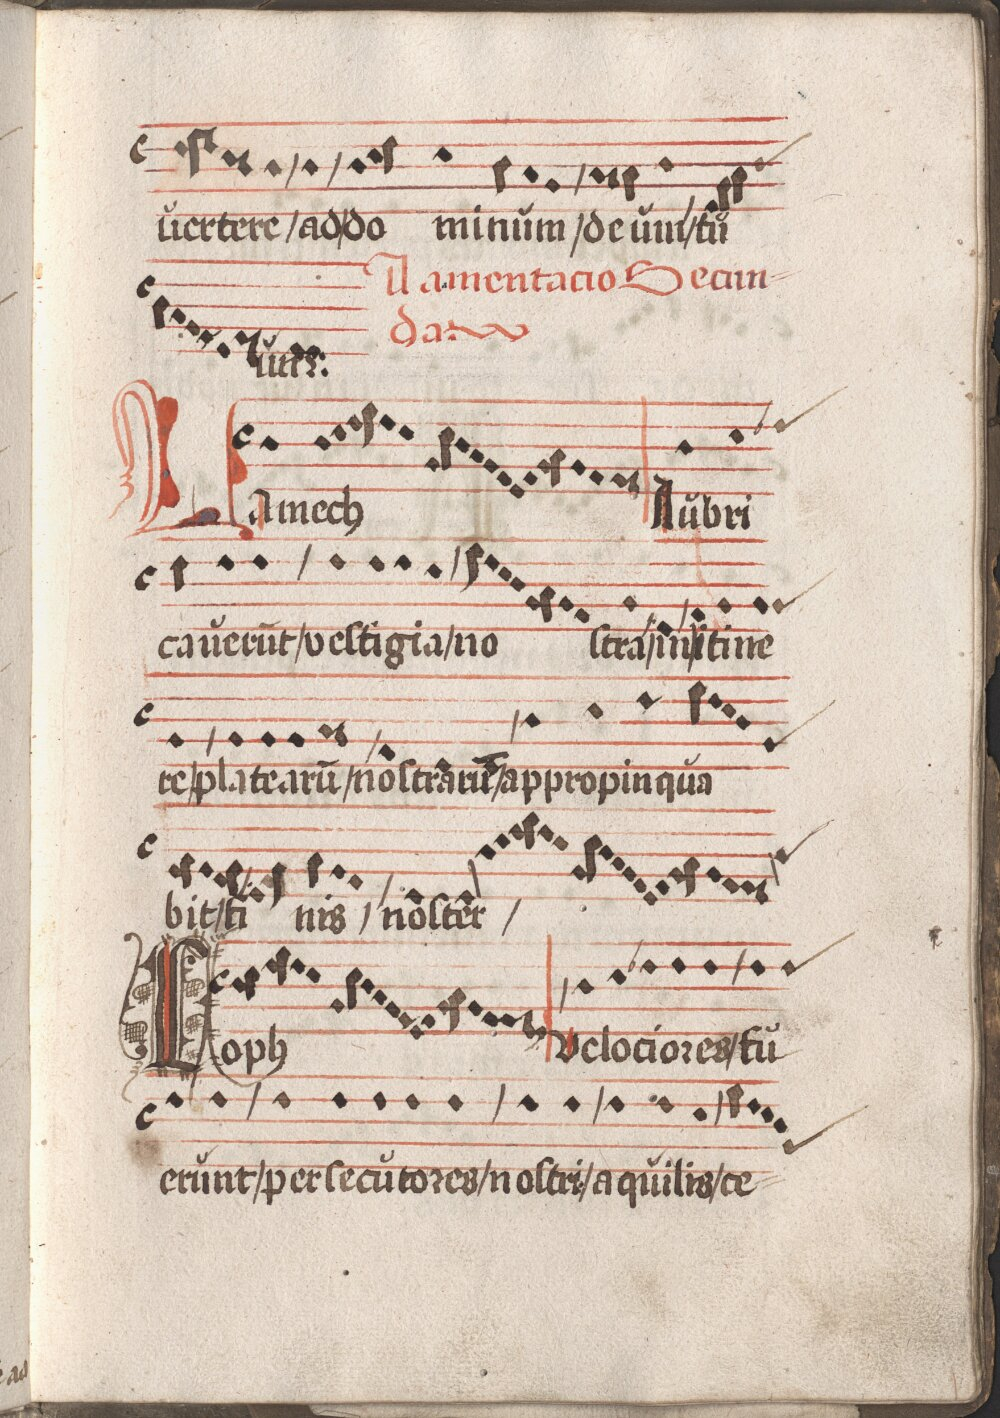 uertere / ad / do minum / deum / tu
Lamentacio Secun-
da.
um.
Lamech Lubri
cauerūt / vestigia / no stra / in / itine
re / platearū / nostrarū / appropinqua
bit / fi nis / noster /
Coph Velociores / fu
erunt / persecutores / nostri / aquilis / ce